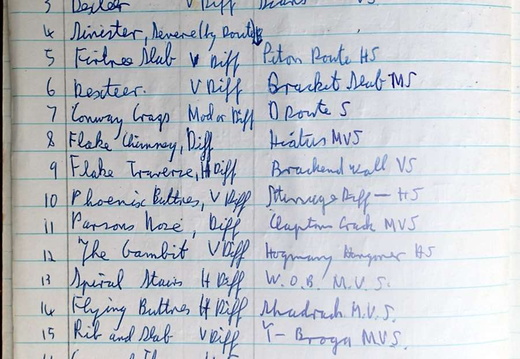 3 Dexter V Diff VS
4 Sinister, Severe (by Route
5 Firtree Slab V Diff Piton Route HS
6 Dexter. V Diff Bracket Slab MS
7 Conway Crags Mod or Diff D Route S
8 Flake Chimney, Diff Hiatus MVS
9 Flake Traverse, H Diff Brackend wall VS
10 Phoenix Buttres, V Diff Diff — HS
11 Parsons Nose, Diff Claptons Crack MVS
12 The Gambit V Diff Hogmany Hangover HS
13 Spiral Stairs H Diff W.O.B. M.V.S.
14 Flying Buttres H Diff M.V.S.
15 Rib and Slab V Diff Y-Broga MVS.